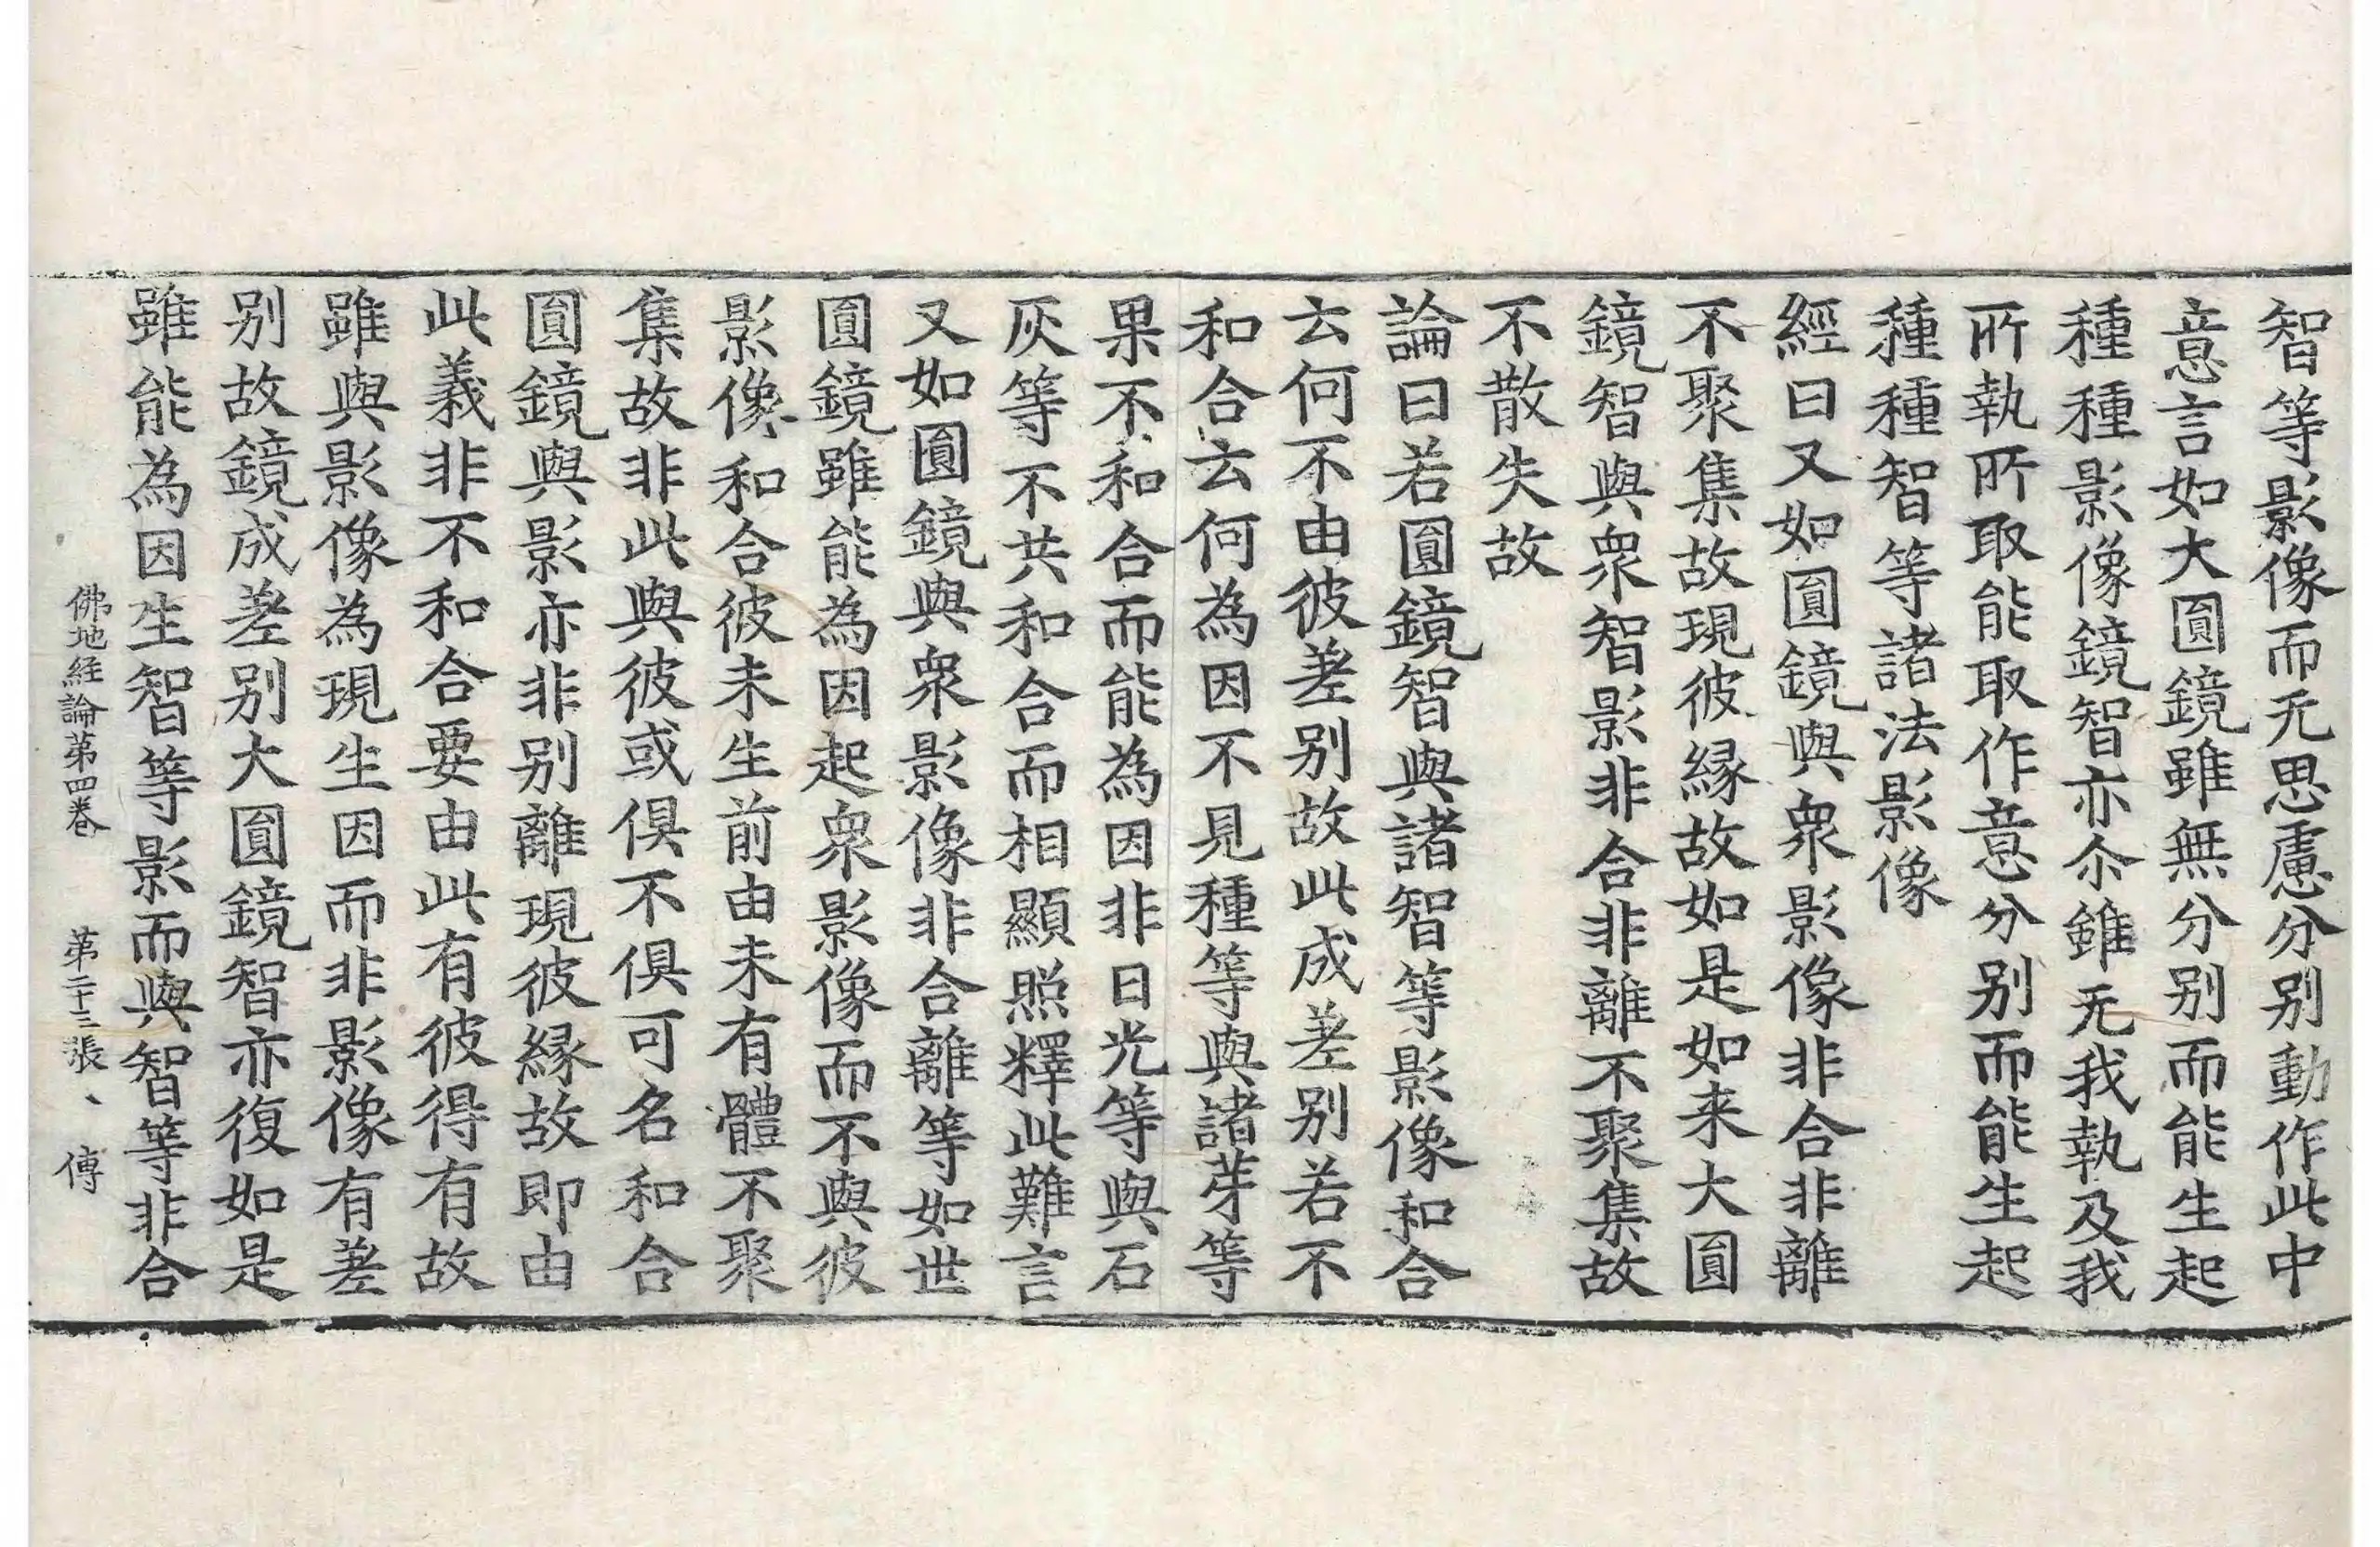 智等影像而无思慮分別動作此中
意言如大圎鏡雖無分別而能生起
種種影像鏡智亦尒雖无我執及我
所執所取能取作意分別而能生起
種種智等諸法影像
經曰又如圎鏡與衆影像非合非離
不聚集故現彼縁故如是如来大圎
鏡智與衆智影非合非離不聚集故
不散失故
論曰若圎鏡智與諸智等影像和合
云何不由彼差别故此成差别若不
和合云何為因不見種等與諸芽等
果不和合而能為因非日光等與石
灰等不共和合而相顯照釋此難言
又如圎鏡與衆影像非合離等如世
圎鏡雖能為因起衆影像而不與彼
影像和合彼未生前由未有體不聚
集故非此與彼或俱不俱可名和合
圎鏡與影亦非别離現彼縁故即由
此義非不和合要由此有彼得有故
雖與影像為現生因而非影像有差
别故鏡成差别大圎鏡智亦復如是
雖能為因生智等影而與智等非合
佛地経論第四卷 第二十三張、 傳